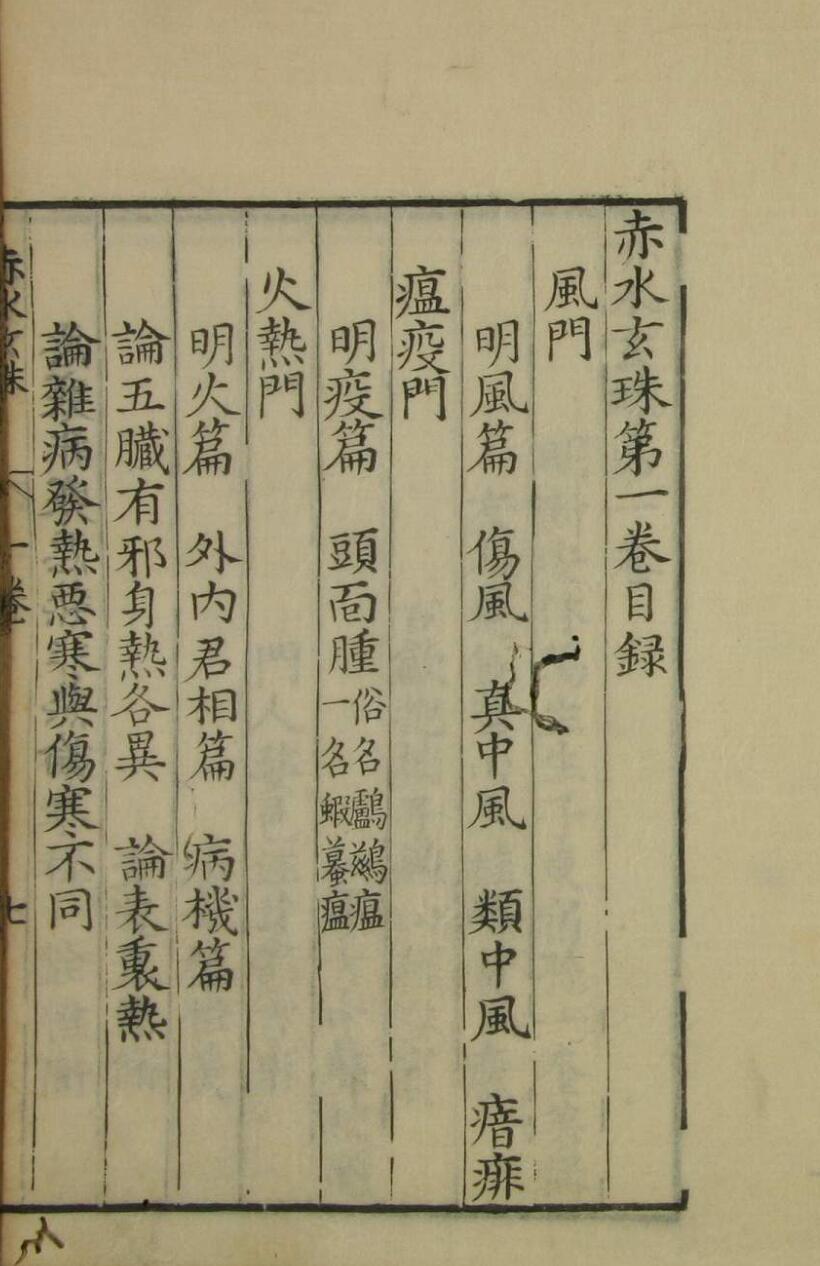 赤水玄珠第一卷目録
風門
明風篇　傷風　真中風　類中風　瘖痱
瘟疫門
明疫篇　頭面腫俗名鸕鷀瘟一名蝦蟇瘟
火熱門
明火篇　外内君相篇　病機篇
論五臓有邪身熱各異　論表裏熱
論雜病發熱惡寒與傷寒不同
赤水玄珠　一卷　七